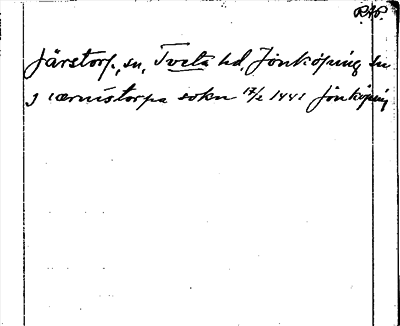 R.A.P.
Järstorp, sn, Tveta hd, Jönköping ln
J iærnistorpa sokn 17/2 1441 Jönköping